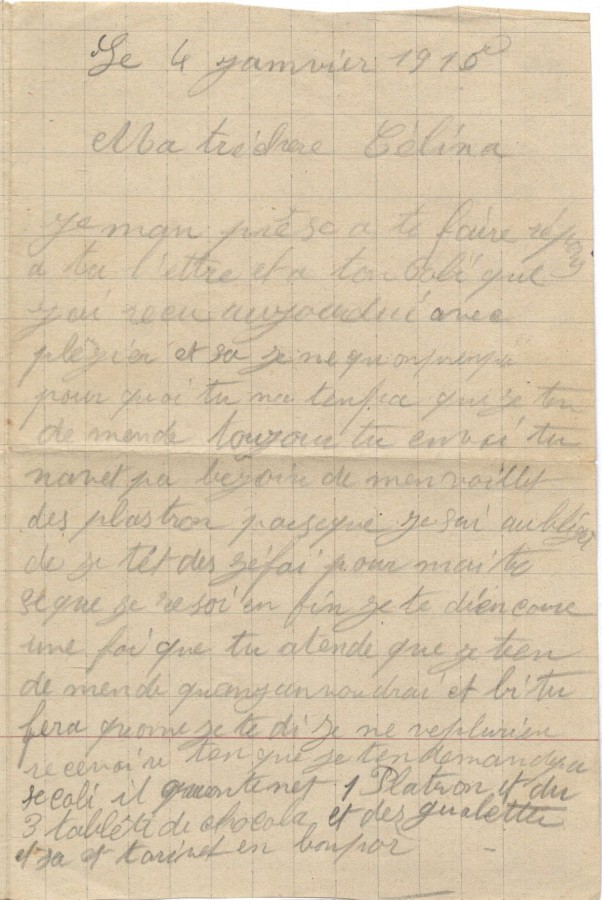 Le 4 janvier 1915
Ma tréchere Célina
Je man présea te faire répons
a ta l'ettre et a ton Coli que
j'ai recu aujourdui avec
plézier et sa je ne quonprenpa
pour quoi tu natenpa que je ten
de mende toujour tu envoi tu
navet pa bezoin de menvoillet
des plastron parseque je sui aubliger
de jetét des zéfai pour maitre
seque je resoi en fin je te di encore
une foi que tu atende que je ten
de mende quanjanvoudrai et bi tu
fera quome je te di je ne veplurien
recevoire ten que je tendemandepa
se coli il quontenet 1 Platron et du
3 tabléte de chocola et des gualette
et sa et tarivet en bonpor